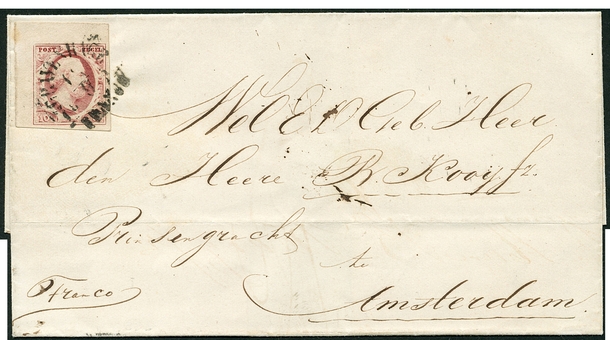 POST ZEGEL
10
Wel Ed Geb. Heer
den Heere R. Kooy fz.
Prinsengracht
te
Franco
Amsterdam.